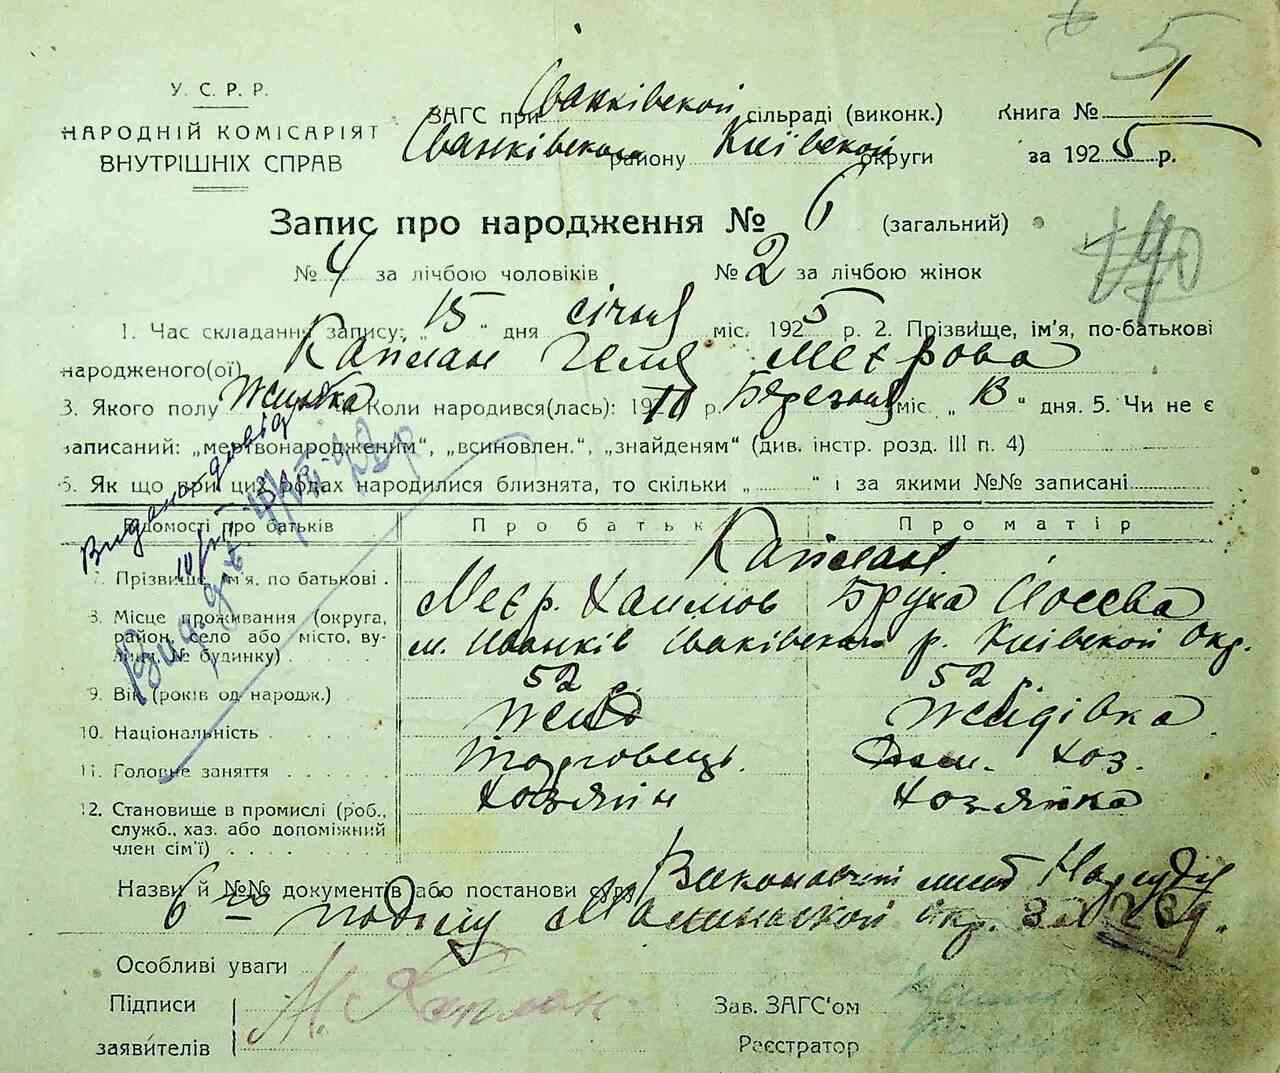 5
У. С. Р. Р.
НАРОДНІЙ КОМІСАРІЯТ
ВНУТРІШНІХ СПРАВ
ЗАГС при Іванківской сільраді (виконк.)
Іванківского району Київской округи
Книга №
за 1925 р.
Запис про народження № 6 (загальний)
№ 4 за лічбою чоловіків № 2 за лічбою жінок
1. Час складання запису: „ 15 “ дня січня міс. 1925 р. 2. Прізвище, ім'я, по-батькові
народженого(ої) Каплан Геля Меєрова
3. Якого полу Жинка Коли народився(лась): 19 р. Березня міс. „ “ дня. 5. Чи не є
записаний: „мертвонародженим“, „всиновлен.“, „знайденям“ (див. інстр. розд. III п. 4)
6. Як що при цих родах народилися близнята, то скільки „ “ і за якими №№ записані
Відомості про батьків Про батька Про матір
Каплан
7. Прізвище, ім'я, по батькові . Меєр. Хаимов Бруха Йосєва
8. Місце проживання (округа, район, село або місто, вулиця, № будинку) м. Іванків Іванківского р. Київской Окр.
9. Вік (років од народж.) 52 р. 52 р.
10. Національність Жид Жидівка
11. Головне заняття Торговець. Дом. хоз.
12. Становище в промислі (роб., служб., хаз. або допоміжний член сім'ї) Хозяин Хозяйка
Назви й №№ документів або постанови суду лист Нарсуду
6 го Окр.
Особливі уваги
Підписи
заявителів
М. Каплан
Зав. ЗАГС'ом
Реєстратор